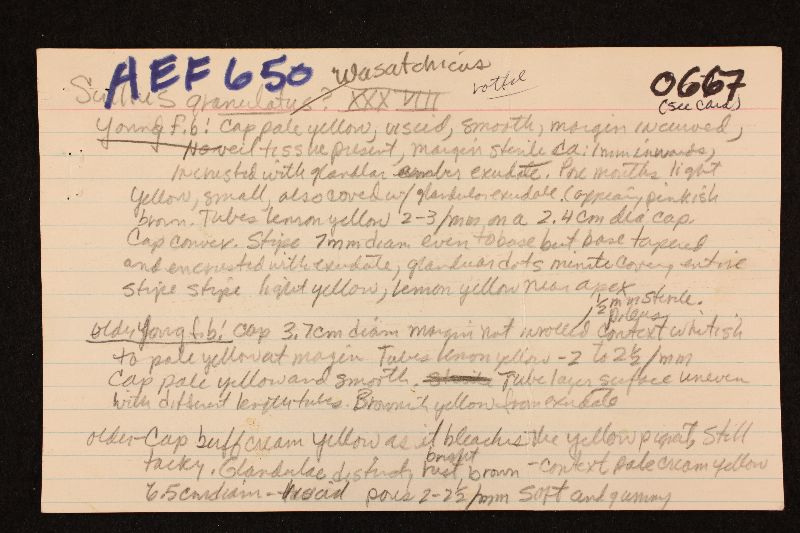 AEF 650 Wasatchicus
rottel 0667
Suillus granulatus? XXXVIII (see card)
Young f.b! Cap pale yellow, viscid, smooth, margin incurved,
No veil tissue present, margin sterile ca. 1mm inwards,
Incrusted with glandlar amber exudate. Pore mouths light
yellow, small, also coved w/ glandular exudate (appearing pinkish
brown. Tubes lemon yellow 2-3/mm on a 2.4cm dia cap.
Cap convex. Stipe 7mm diam even to base but base tapered
and encrusted with exudate, glanduar dots minute covering entire
stipe stipe light yellow, lemon yellow near apex
1/2 mm sterile.
older Young f.b! Cap 3.7cm diam margin not inrolled Context whitish
to pale yellow at magin Tubes lemon yellow - 2 to 2½/mm
Cap pale yellow and smooth. Tube layer surface uneven
with different length tubes. Brownish yellow from exudate
older - Cap buff cream yellow as if bleaches the yellow pigmat, Still
tacky. Glandulae distinct, bright rust brown - context pale cream yellow
6.5cm diam - viscid pores 2-2½/mm Soft and gummy